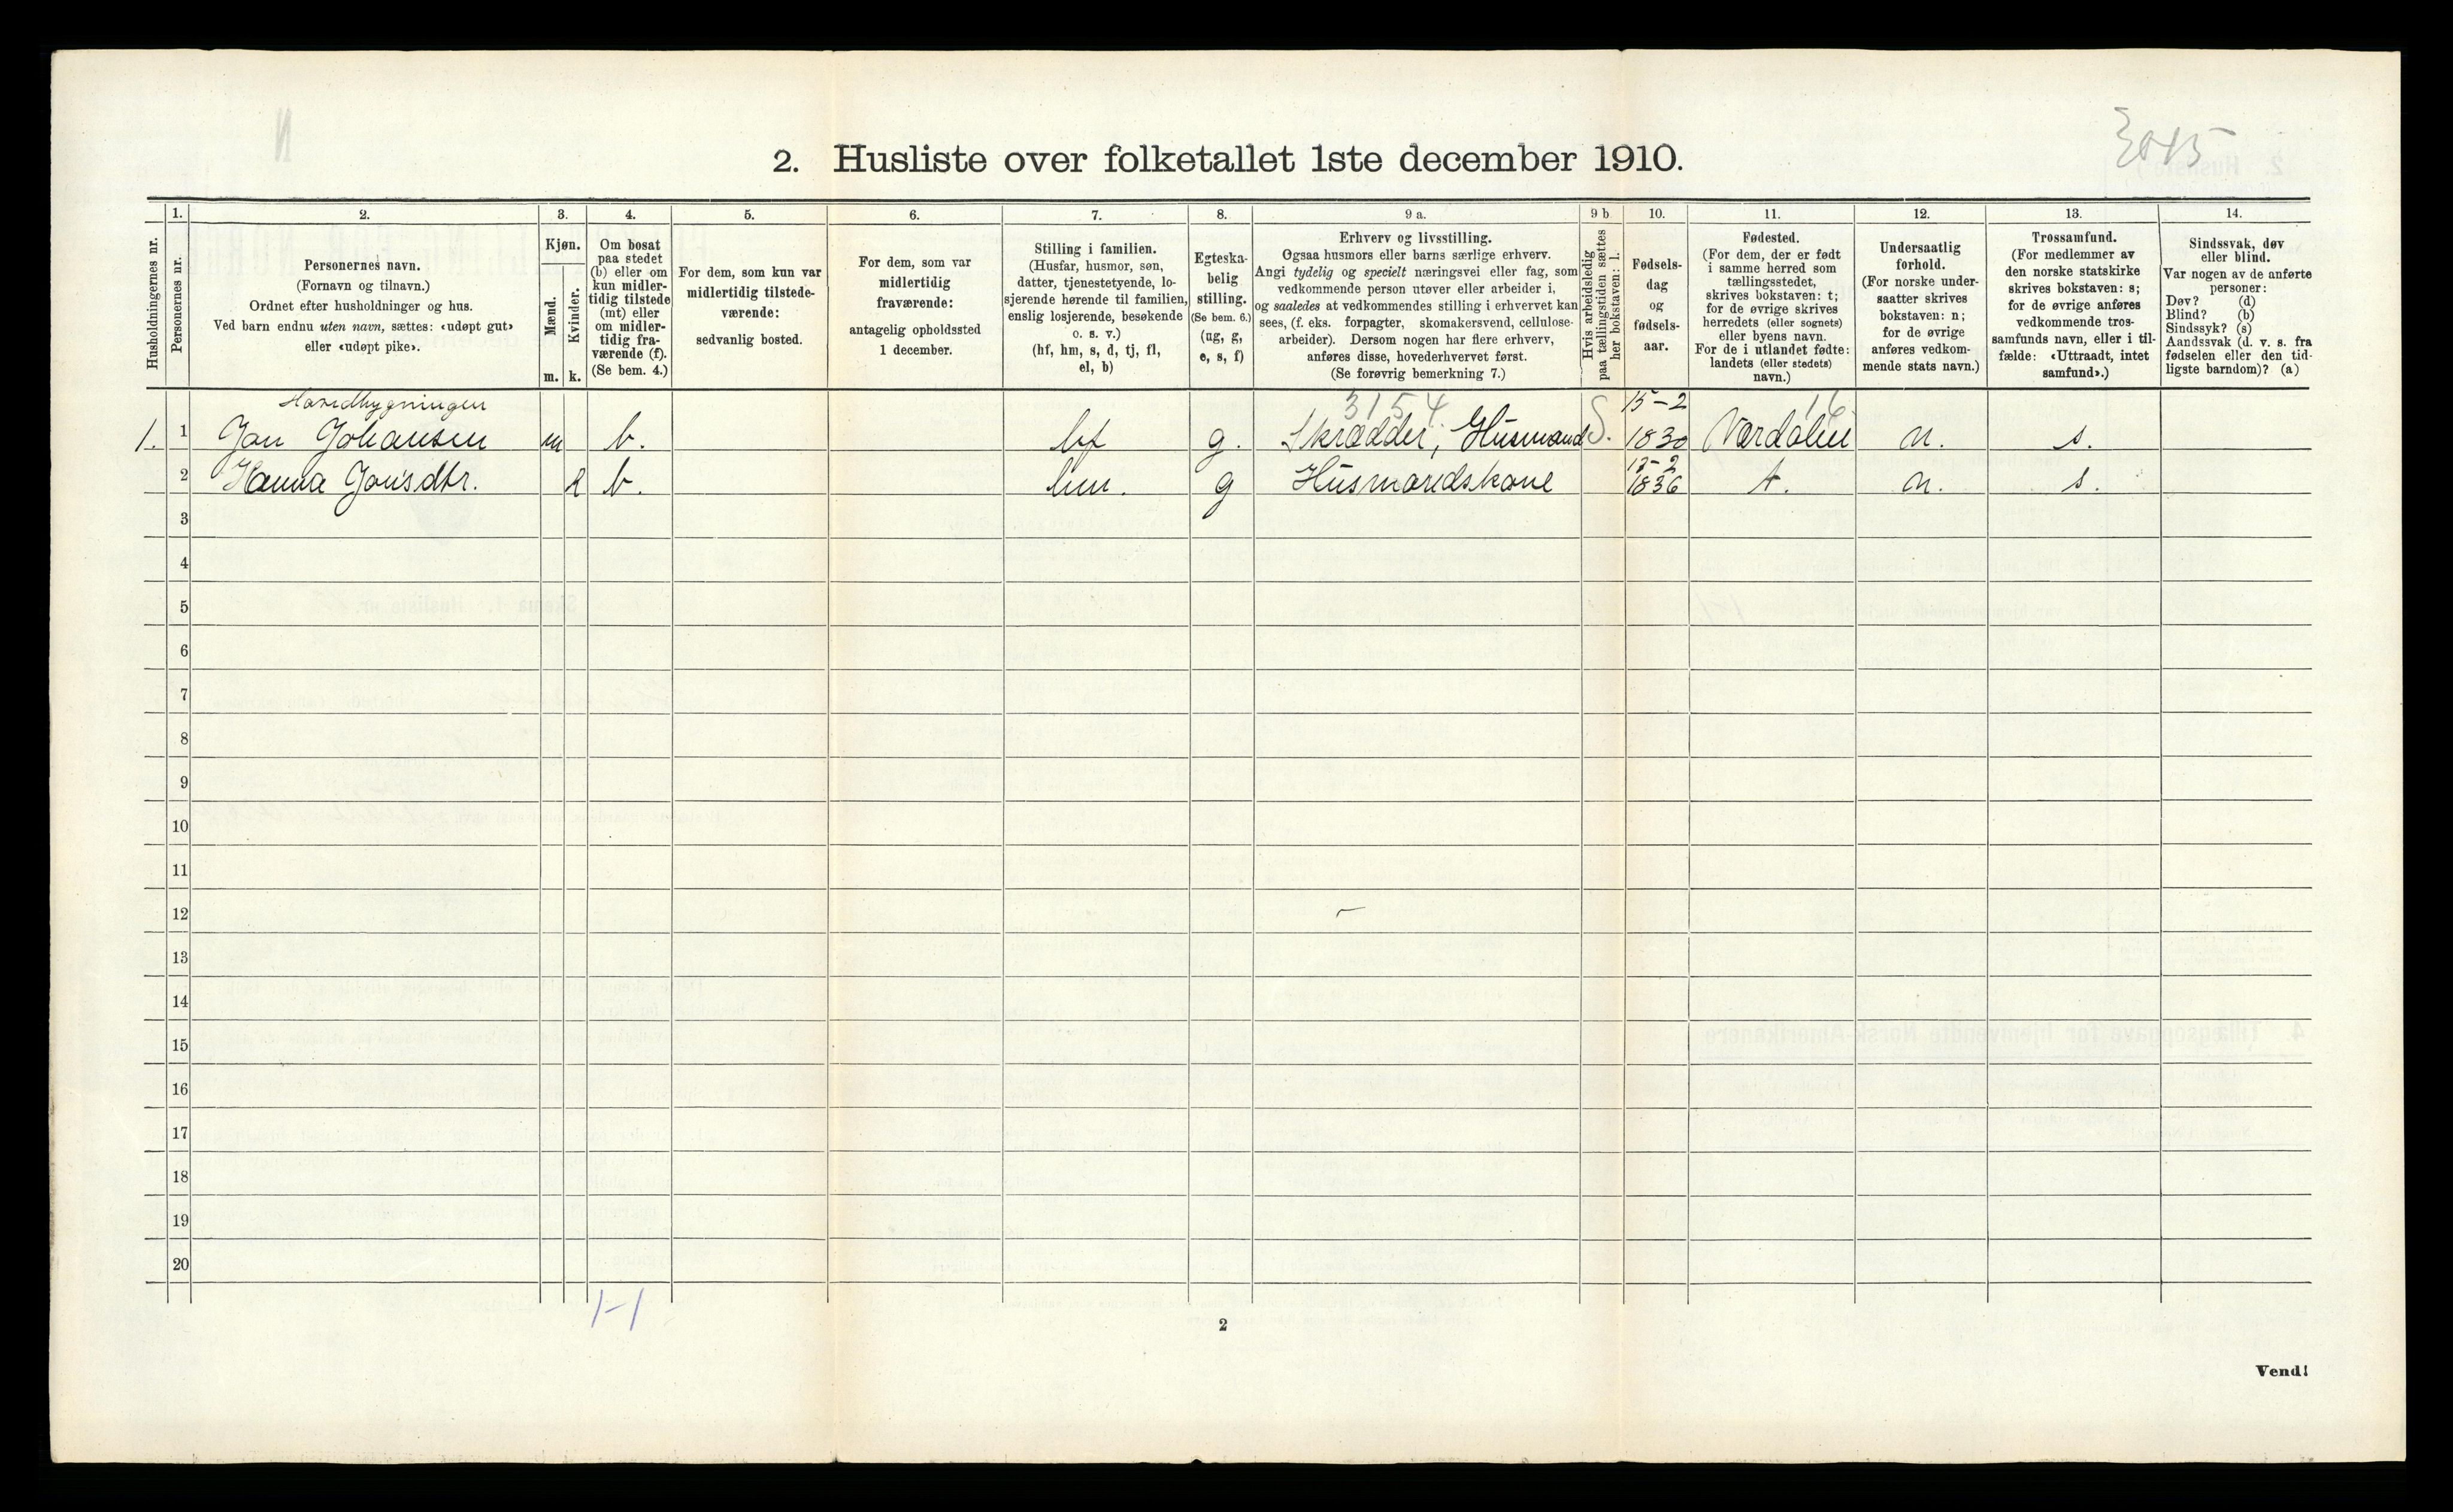 2. Husliste over folketallet 1ste december 1910.
Husholdningernes nr.
1.
Personernes nr.
2.
Personernes navn.
(Fornavn og tilnavn.)
Ordnet efter husholdninger og hus.
Ved barn endnu uten navn, sættes: «udøpt gut»
eller «udøpt pike».
3.
Kjøn.
Mænd.
m.
Kvinder.
k.
4.
Om bosat
paa stedet
(b) eller om
kun midler-
tidig tilstede
(mt) eller
om midler-
tidig fra-
værende (f).
(Se bem. 4.)
5.
For dem, som kun var
midlertidig tilstede-
værende:
sedvanlig bosted.
6.
For dem, som var
midlertidig
fraværende:
antagelig opholdssted
1 december.
7.
Stilling i familien.
(Husfar, husmor, søn,
datter, tjenestetyende, lo-
sjerende hørende til familien,
enslig losjerende, besøkende
o. s. v.)
(hf, hm, s, d, tj, fl,
el, b)
8.
Egteska-
belig
stilling.
(Se bem. 6.)
(ug, g,
e, s, f)
9 a.
Erhverv og livsstilling.
Ogsaa husmors eller barns særlige erhverv.
Angi tydelig og specielt næringsvei eller fag, som
vedkommende person utøver eller arbeider i,
og saaledes at vedkommendes stilling i erhvervet kan
sees, (f. eks. forpagter, skomakersvend, cellulose-
arbeider). Dersom nogen har flere erhverv,
anføres disse, hovederhvervet først.
(Se forøvrig bemerkning 7.)
9 b
Hvis arbeidsledig
paa tællingstiden sættes
her bokstaven: l.
10.
Fødsels-
dag
og
fødsels-
aar.
11.
Fødested.
(For dem, der er født
i samme herred som
tællingsstedet,
skrives bokstaven: t;
for de øvrige skrives
herredets (eller sognets)
eller byens navn.
For de i utlandet fødte:
landets (eller stedets)
navn.)
12.
Undersaatlig
forhold.
(For norske under-
saatter skrives
bokstaven: n;
for de øvrige
anføres vedkom-
mende stats navn.)
13.
Trossamfund.
(For medlemmer av
den norske statskirke
skrives bokstaven: s;
for de øvrige anføres
vedkommende tros-
samfunds navn, eller i til-
fælde: «Uttraadt, intet
samfund».)
14.
Sindssvak, døv
eller blind.
Var nogen av de anførte
personer:
Døv? (d)
Blind? (b)
Sindssyk? (s)
Aandssvak (d. v. s. fra
fødselen eller den tid-
ligste barndom)? (a)
Hovedbygningen 3154 15-2
1. 1 Jon Johansen m b. hf g. Skrædder, Husmand S. 1830 Værdalen n. s.
2 Hanna Jonsdtr. k b. hm. g Husmandskone 1836 t. n. s.
3
4
5
6
7
8
9
10
11
12
13
14
15
16
17
18
19
20
1-1
2
Vend!